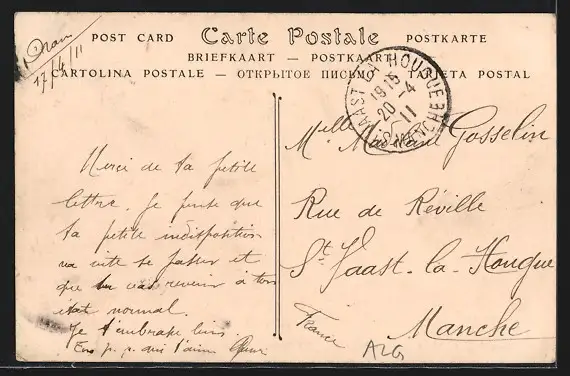 Oran
17/4/11
POST CARD Carte Postale POSTKARTE
BRIEFKAART — POSTKAART
CARTOLINA POSTALE — ОТКРЫТОЕ ПИСЬМО — TARJETA POSTAL
VAAST LA HOUGUE
19 15
20 - 4
11
MANCHE
Merci de ta petite
lettre. Je pense que
ta petite indisposition
va vite se passer et
que tu vas revenir à ton
état normal.
Je t'embrasse bien
Ton p. p. qui t'aime
Melle Gosselin
Rue de Réville
St. Vaast-la-Hougue
Manche
France
ALG